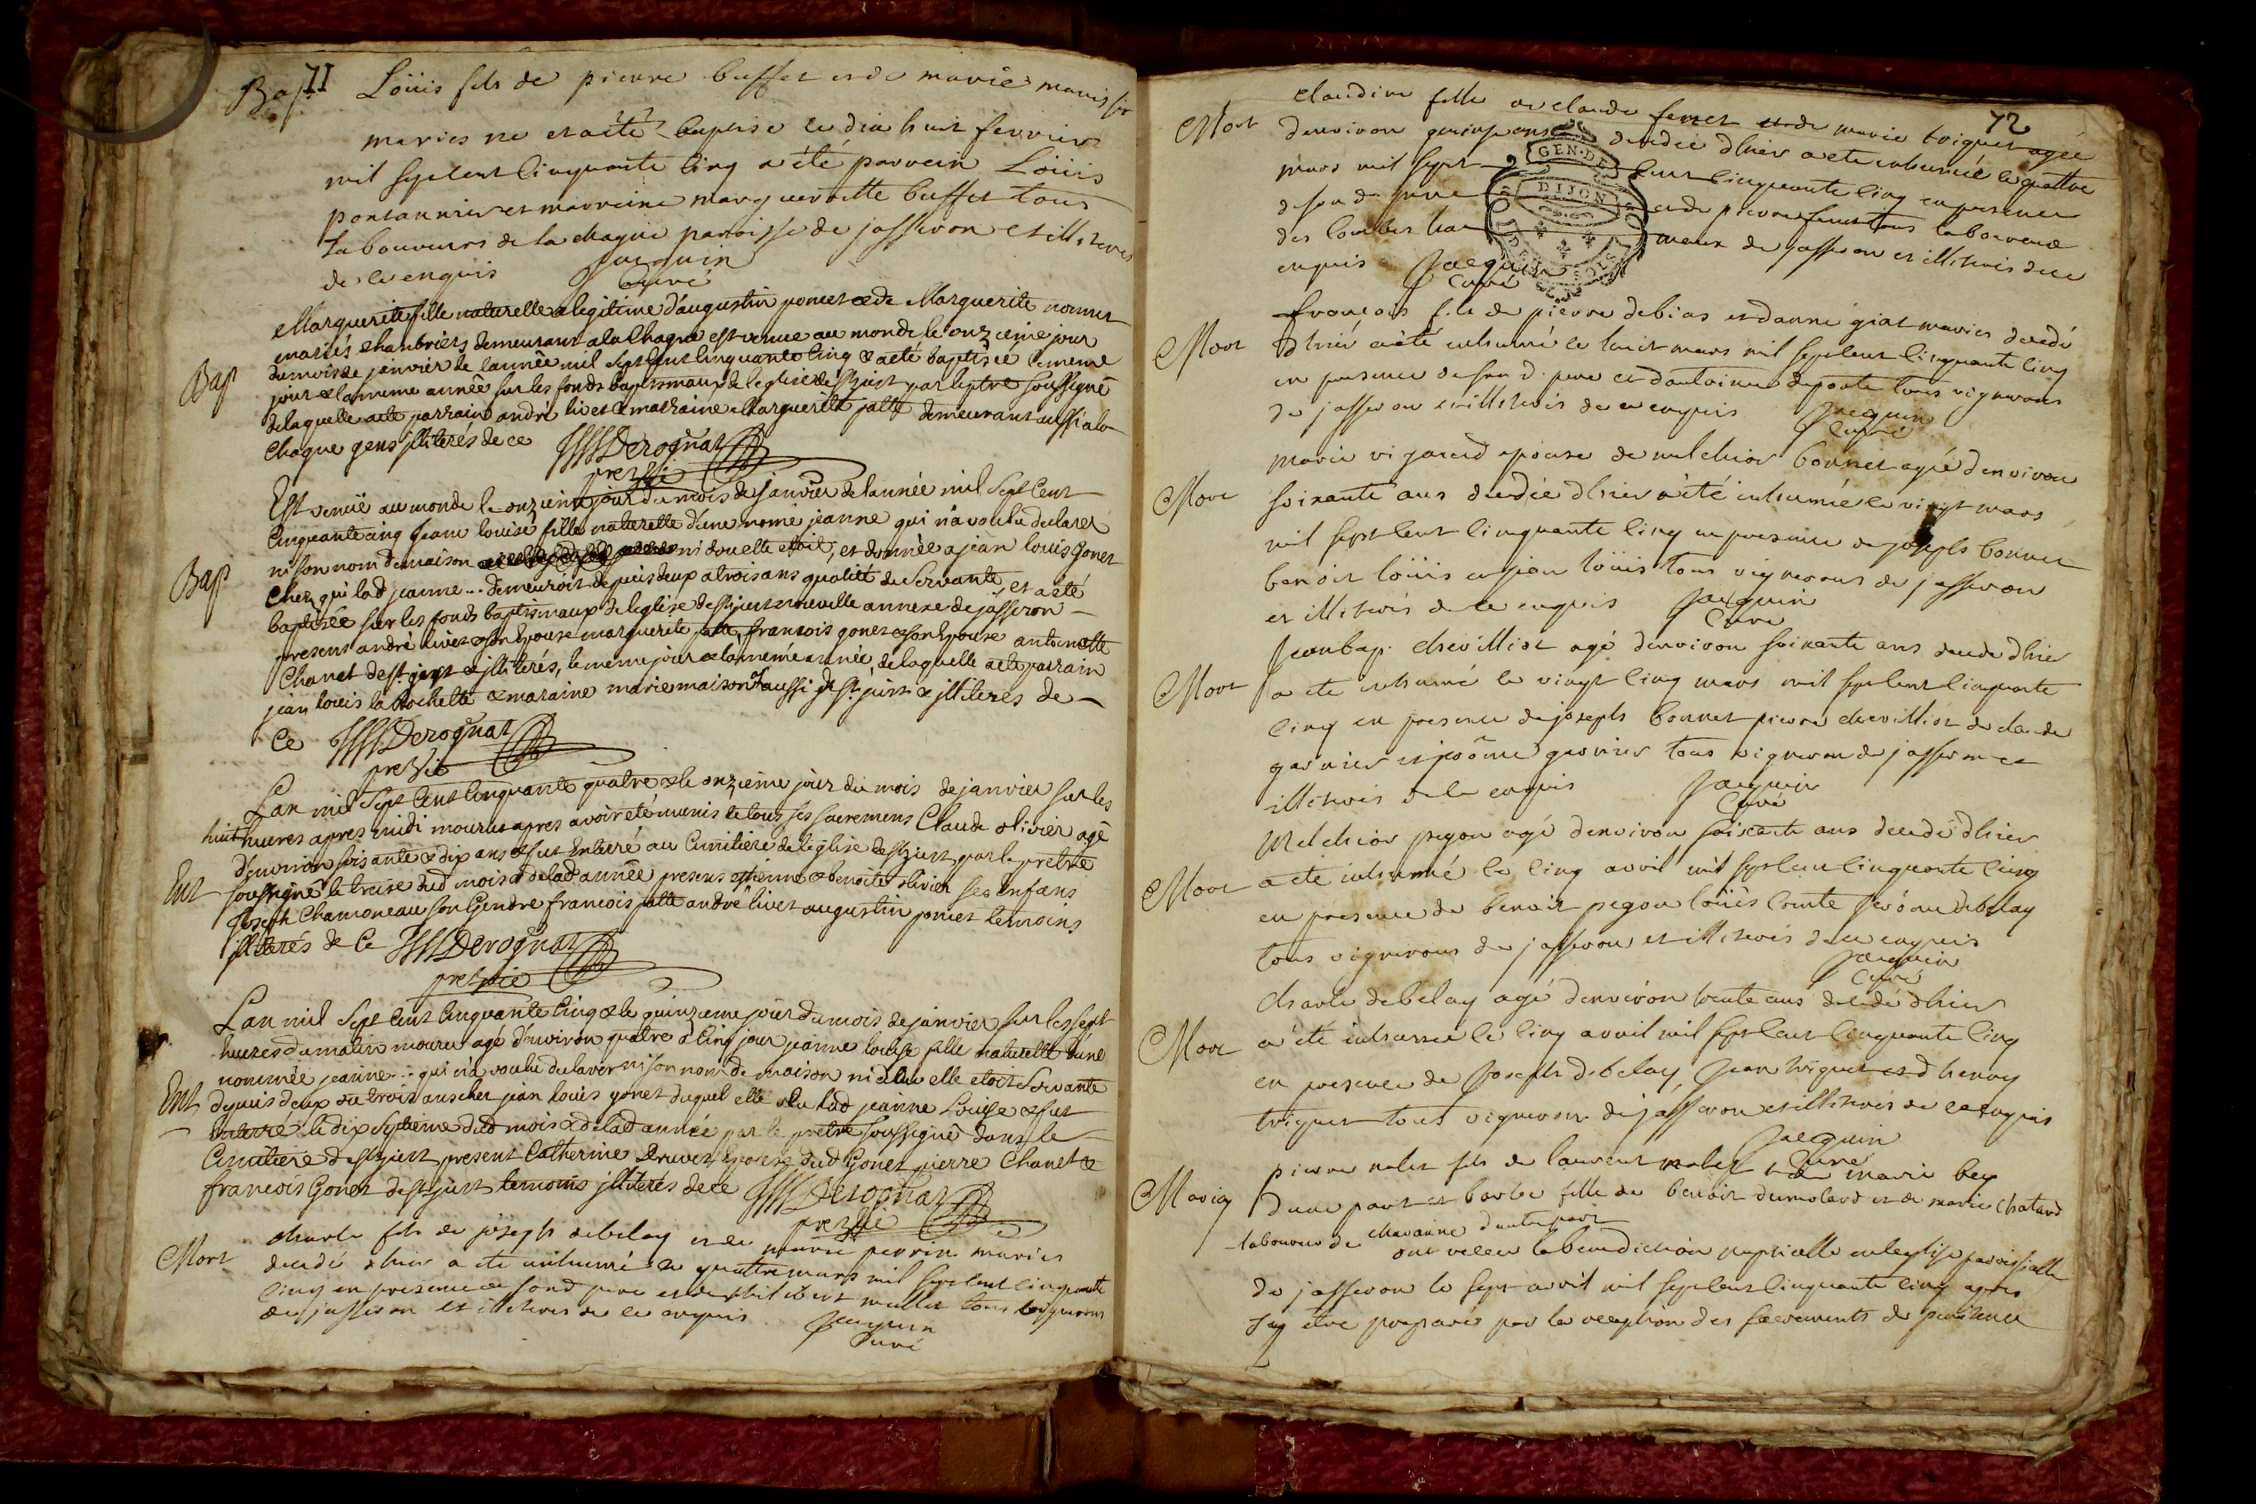 71
Bap Loüis fils de pierre buffet et de marie
maries ne et a été baptise le dix huit fevrier
mil sept cent cinquante cinq a été parrein Loüis
pontannier et marreine marguerite buffet tous
laboureurs de la chagne paroisse de jasseron et illiteres
de ce enquis Jacquin
Curé
Marguerite fille naturelle & legitime d'augustin poncet & de Marguerite nonnet
mariés chanbriers demeurant a la Chagne est venue au monde le onzieme jour
Bap du mois de janvier de l'année mil sept cent cinquante cinq & a eté baptisée le meme
jour & la meme année sur les fonds baptismaux de l'eglise de st just par le ptre soussigné
de laquelle a eté parrain andré livet & marraine Marguerite jatte demeurant aussi a la
Chagne gens jlliterés de ce Derognat
pre vic
Est venuë au monde le onzieme jour du mois de janvier de l'année mil sept cent
Cinquante cinq jeanne louise fille naturelle d'une nomé jeanne qui n'a voulu declarer
ni son nom de maison ni d'ou elle etoit, et donnée a jean louis Gonet
Bap Chez qui lad jeanne... demeuroit depuis deux a trois ans qualité de Servante et a eté
baptisée sur les fonds baptismaux de l'eglise de st just nouvelle annexe de jasseron
presens andré livet & son Epouse marguerite jatte, francois gonet & son Epouse antoinette
Chanet de st just & jlliterés, le meme jour & la meme année, de laquelle a eté parrain
jean louis la Rochette & maraine marie maison aussi de st just & jlliteres de
Ce Derognat
pre vic
L'an mil Sept Cent Cinquante quatre & le onzieme jour du mois de janvier sur les
huit heures apres midi mourut apres avoir eté munis de tous ses sacremens Claude olivier agé
d'environ soisante & dix ans & fut Enterré au Cimitiere de l'eglise de st just par le prêtre
Ent soussigné le treise dud mois & de lad année presens etienne & benoite olivier ses Enfans
Joseph Chamoneau son Gendre francois jatte andré livet augustin poncet temoins
jlliterés de Ce Derognat
pre vic
L'an mil Sept Cent Cinquante Cinq & le quinzieme jour du mois de janvier sur les sept
heures du matin mourut agé d'environ quatre a Cinq jour jeanne louise fille naturelle d'une
nommée jeanne... qui n'a voulu declarer ni son nom de maison ni d'ou elle etoit Servante
Ent depuis deux ou trois ans chez jean louis gonet duquel elle a eu lad jeanne Louise & fut
Enterré le dix Septieme dud mois & de lad année par le prêtre soussigné dans le
Cimitiere de st just present Catherine Druvet epouse dud Gonet pierre Chanet &
francois Gonet de st just temoins jlliterés de ce Derognat
pre vic
Charle fils de joseph debelay et de marie perrin maries
Mort decedé d'hier a eté inhumé le quattre mars mil sept cent cinquante
cinq en presence de son d pere et de mullet tous vignerons
de jasseron et illiteres de ce enquis Jacquin
Curé
72
Claudine fille de claude ferret et de marie triquet agée
Mort d'environ quinze ans decedée d'hier a ete inhumée le quattre
mars mil sept cent cinquante cinq en presence
de son d. pere et de pierre ferret tous laboureurs
des
enquis Jacquin
Curé
François fils de pierre debias et d'anne giat maries decedé
Mort d'hier a été inhumé le huit mars mil sept cent cinquante cinq
en presence de son d. pere et d'antoine deporte tous vignerons
de jasseron et illiterés de ce enquis Jacquin
Curé
Marie vigoureud epouse de melchior bonnet agée d'environ
Mort soixante ans decedée d'hier a été inhumée le vingt mars
mil sept cent cinquante cinq en presence de joseph bonnet
benoit loüis et jean loüis tous vignerons de jasseron
et illiterés de ce enquis Jacquin
Curé
Jean bap. chevilliot agé d'environ soixante ans decedé d'hier
Mort a ete inhumé le vingt cinq mars mil sept cent cinquante
cinq en presence de joseph bonnet pierre chevilliot de claude
garnier et jérôme garnier tous vignerons de jasseron et
illiterés de ce enquis Jacquin
Curé
Melchior pegon agé d'environ soixante ans decedé d'hier
Mort a eté inhumé le cinq avril mil sept cent cinquante cinq
en presence de benoit pegon loüis Comte jérôme debelay
tous vignerons de jasseron et illiterés de ce enquis
Jacquin
Curé
Charle debelay agé d'environ trente ans decedé d'hier
Mort a été inhumé le cinq avril mil sept cent cinquante cinq
en presence de Joseph debelay Jean triquet et d henry
triquet tous vignerons de jasseron et illiterés de ce enquis
Jacquin
Curé
Pierre nalet fils de laurent nalet et de marie bey
Mariag d'une part et barbe fille de benoit dumolard et de marie Chatard
laboureur de chavanne d'autre part
ont receu la benediction nuptialle en leglise parroissialle
de jasseron le sept avril mil sept cent cinquante cinq apres
s'y etre preparés par la reception des sacrements de penitence